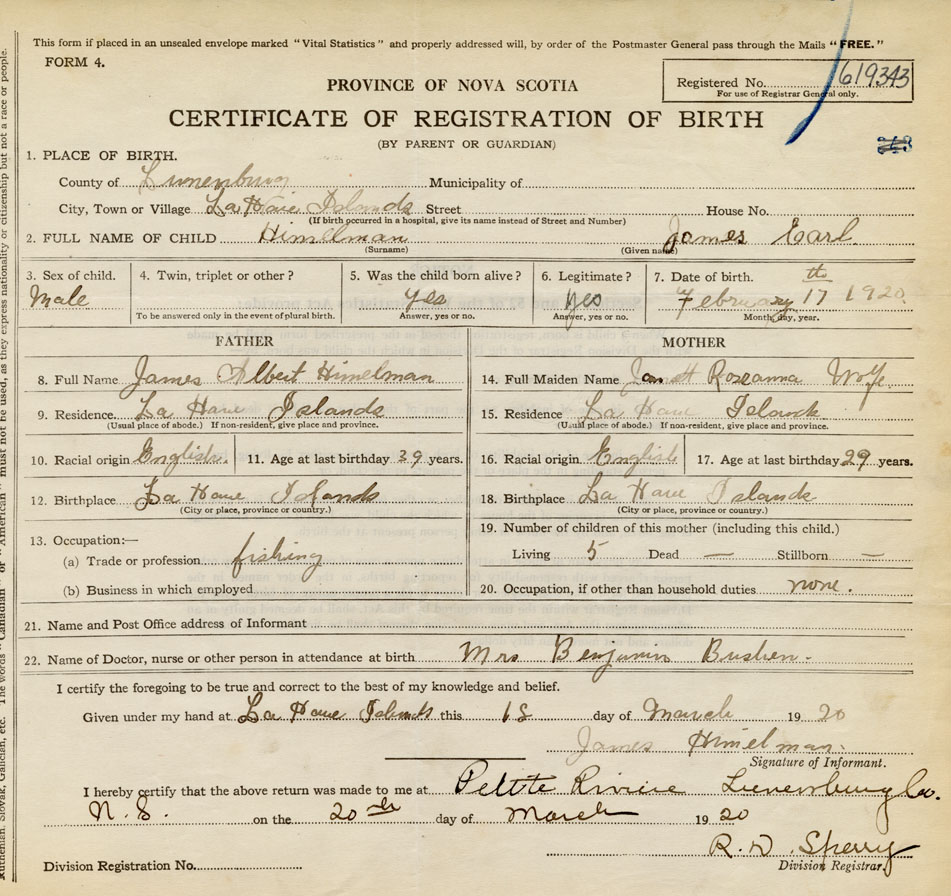 This form if placed in an unsealed envelope marked "Vital Statistics" and properly addressed will, by order of the Postmaster General pass through the Mails "FREE."
FORM 4.
Registered No. 619343
For use of Registrar General only.
PROVINCE OF NOVA SCOTIA
CERTIFICATE OF REGISTRATION OF BIRTH
(BY PARENT OR GUARDIAN)
1. PLACE OF BIRTH.
County of Lunenburg Municipality of
City, Town or Village La Have Islands Street House No.
(If birth occurred in a hospital, give its name instead of Street and Number)
2. FULL NAME OF CHILD Himelman James Earl
(Surname) (Given name)
3. Sex of child. Male
4. Twin, triplet or other?
To be answered only in the event of plural birth.
5. Was the child born alive? yes
Answer, yes or no.
6. Legitimate? yes
Answer, yes or no.
7. Date of birth. February 17th 1920
Month, day, year.
FATHER
8. Full Name James Albert Himelman
9. Residence. La Have Islands
(Usual place of abode.) If non-resident, give place and province.
10. Racial origin English 11. Age at last birthday 39 years.
12. Birthplace La Have Islands
(City or place, province or country.)
13. Occupation:—
(a) Trade or profession fishing
(b) Business in which employed
MOTHER
14. Full Maiden Name Roseanna Wolfe
15. Residence La Have Islands
(Usual place of abode.) If non-resident, give place and province.
16. Racial origin English 17. Age at last birthday 29 years.
18. Birthplace La Have Islands
(City or place, province or country.)
19. Number of children of this mother (including this child.)
Living 5 Dead — Stillborn —
20. Occupation, if other than household duties none.
21. Name and Post Office address of Informant
22. Name of Doctor, nurse or other person in attendance at birth Mrs Benjamin Bushen.
I certify the foregoing to be true and correct to the best of my knowledge and belief.
Given under my hand at La Have Islands this 18 day of March 1920
James Himelman.
Signature of Informant.
I hereby certify that the above return was made to me at Petite Riviere Lunenburg Co.
N.S. on the 20th day of March 1920
R. D. Sperry
Division Registration No. Division Registrar.
Ruthenian, Slovak, Galician, etc. The words "Canadian" or "American" must not be used, as they express nationality or citizenship but not a race or people.